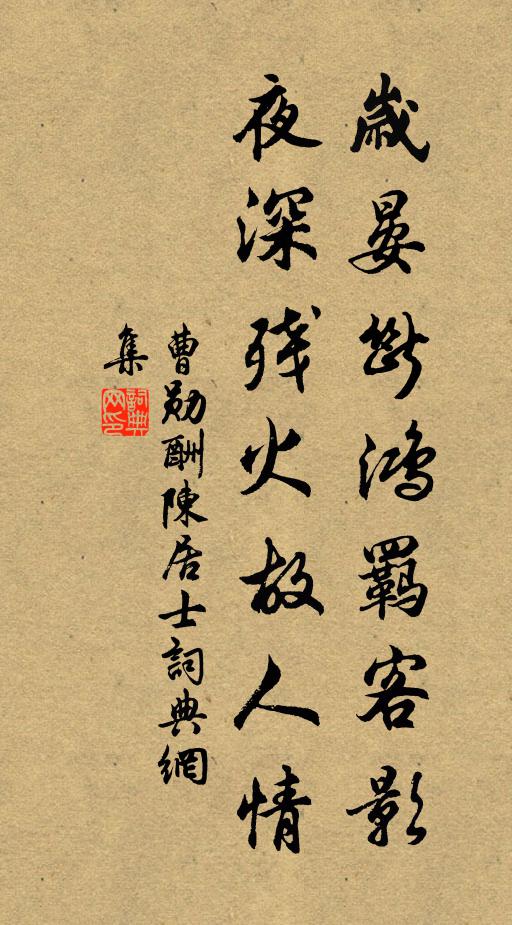 歲晏斷鴻羈客影
夜深残火故人情
曹勛酬陳居士詞典網
集
詞典網印